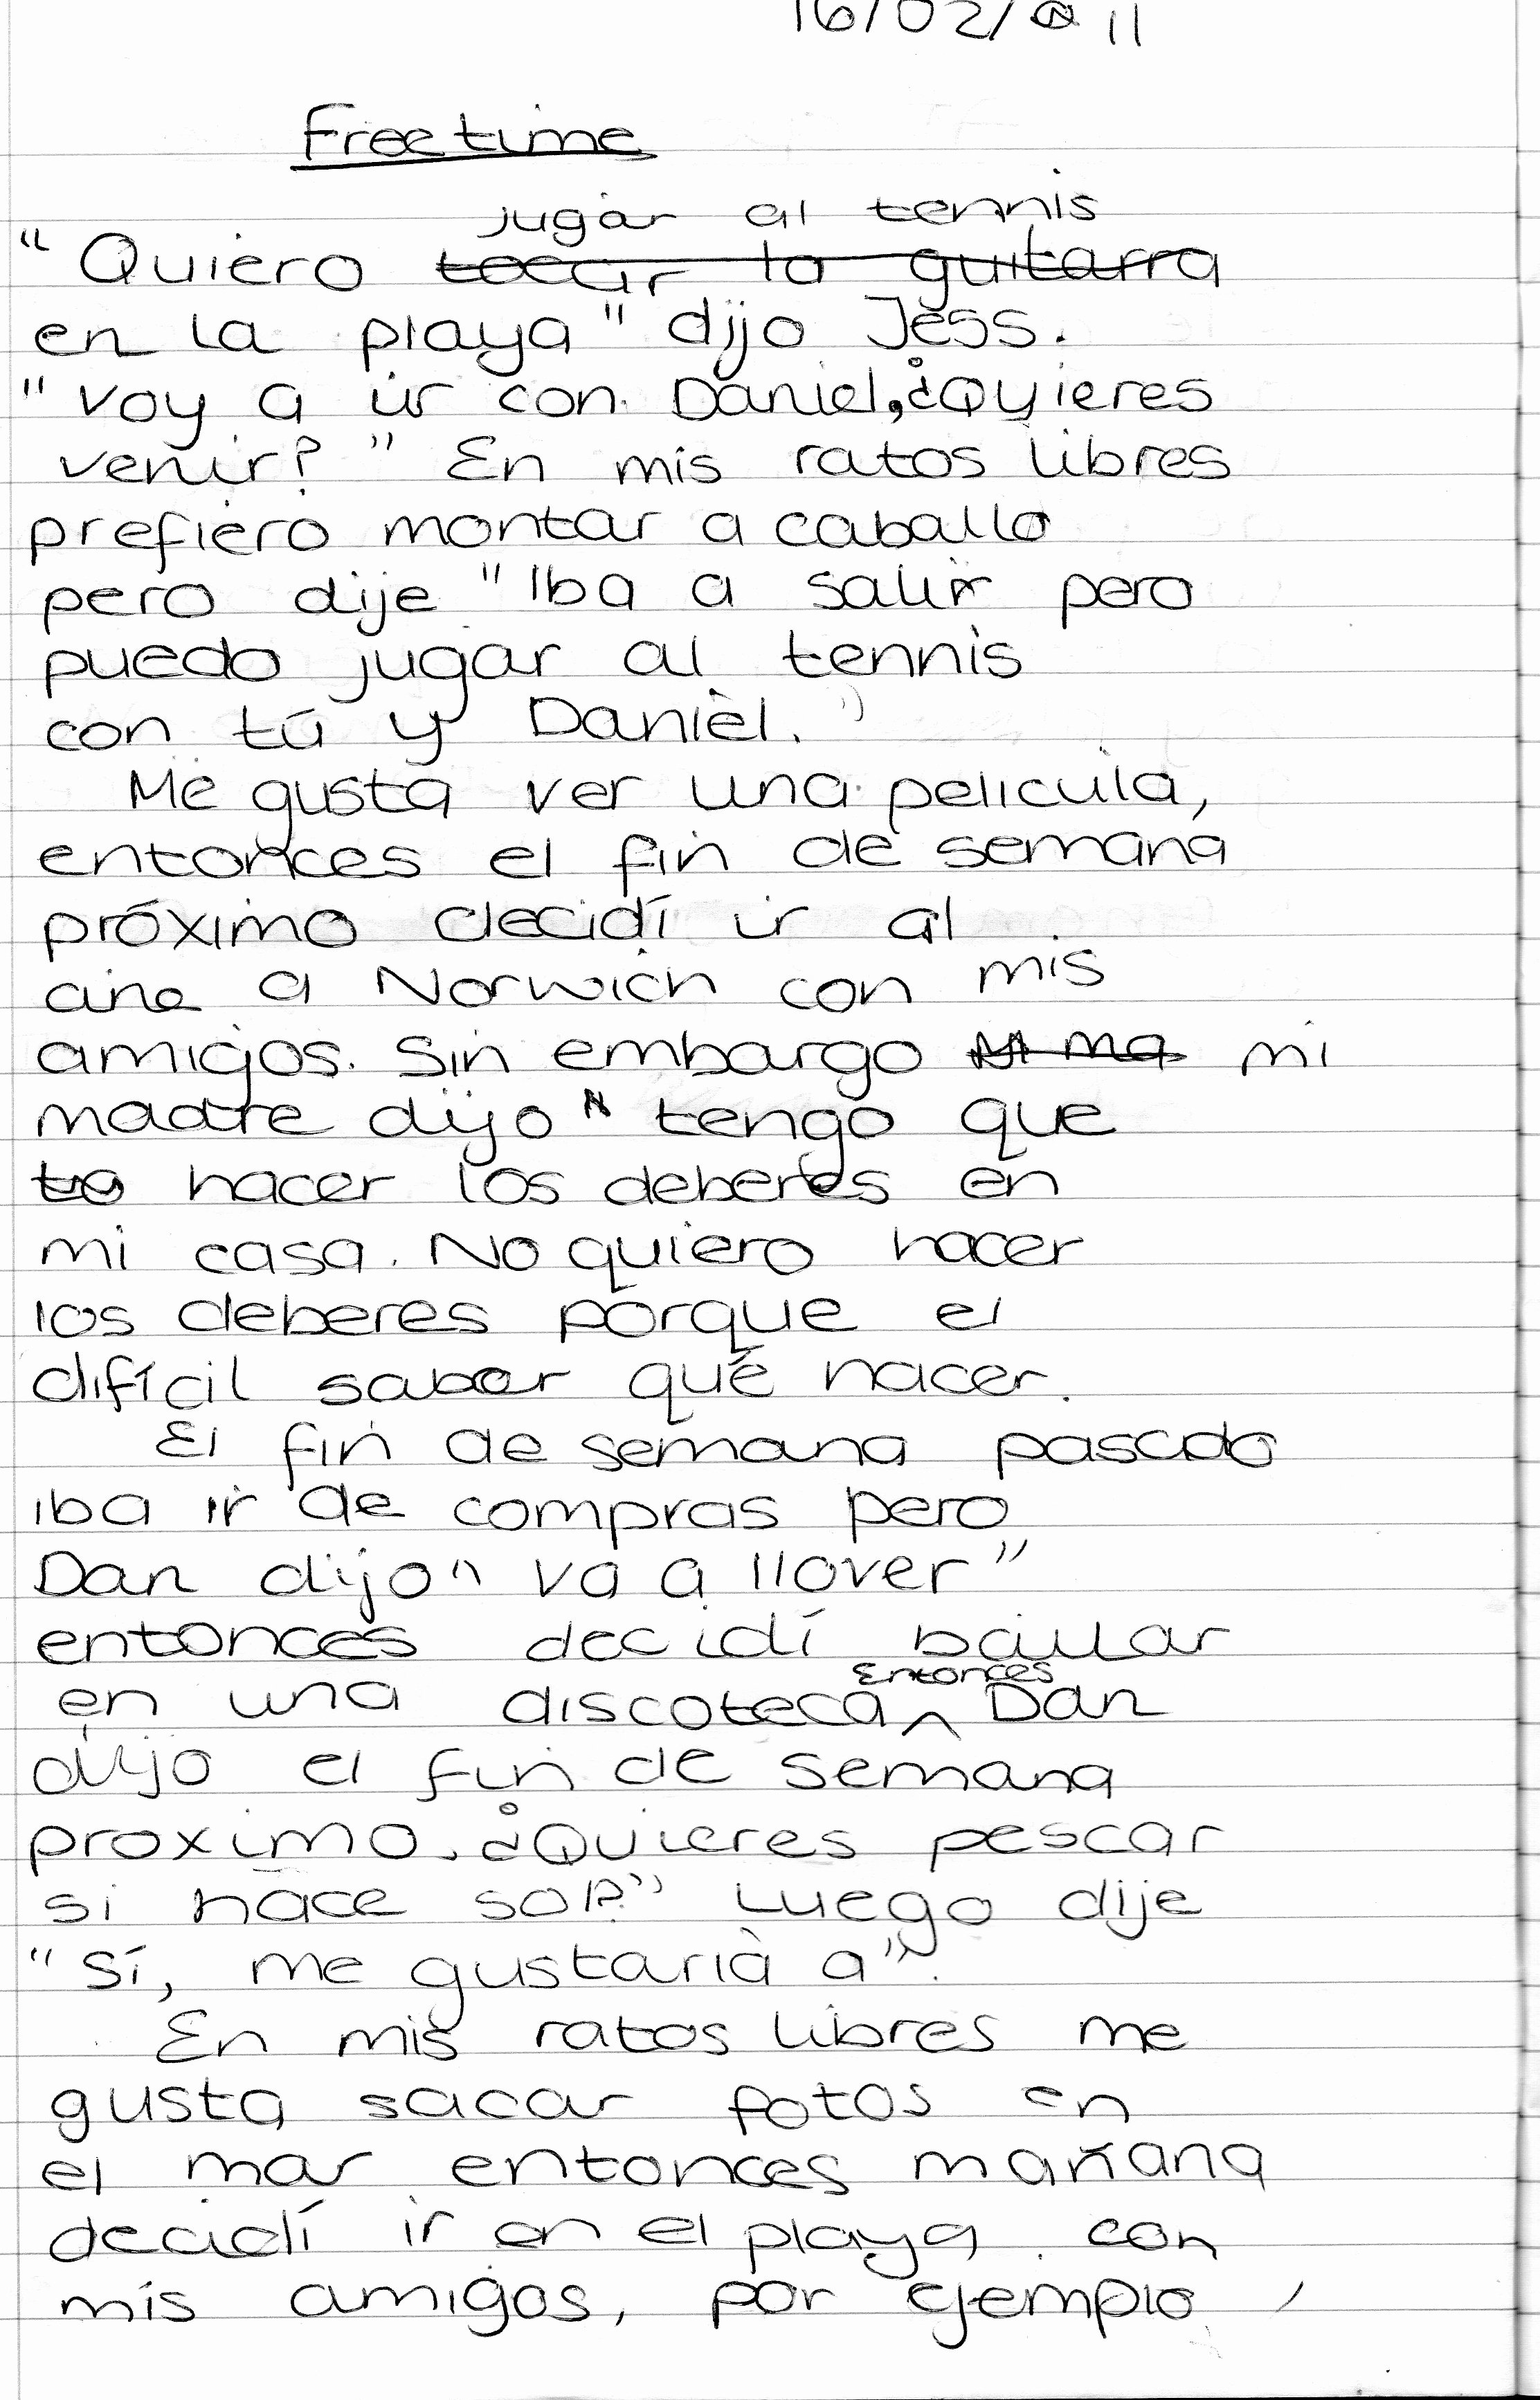 16/02/11
Free time
jugar al tennis
"Quiero tocar la guitarra
en la playa" dijo Jess.
"Voy a ir con Daniel, ¿Quieres
venir?" En mis ratos libres
prefiero montar a caballo
pero dije "Iba a salir pero
puedo jugar al tennis
con tú y Daniel."
Me gusta ver una pelicula,
entonces el fin de semana
próximo decidí ir al
cine a Norwich con mis
amigos. Sin embargo mi
madre dijo " tengo que
hacer los deberes en
mi casa. No quiero hacer
los deberes porque el
difícil saber qué hacer.
El fin de semana pasado
iba ir de compras pero
Dan dijo " va a llover"
entonces decidí bailar
Entonces
en una discoteca ^ Dan
dijo el fin de semana
proximo. ¿Quieres pescar
si hace sol?" Luego dije
"Sí, me gustaria a".
En mis ratos libres me
gusta sacar fotos en
el mar entonces mañana
decidí ir en el playa con
mis amigos, por ejemplo,